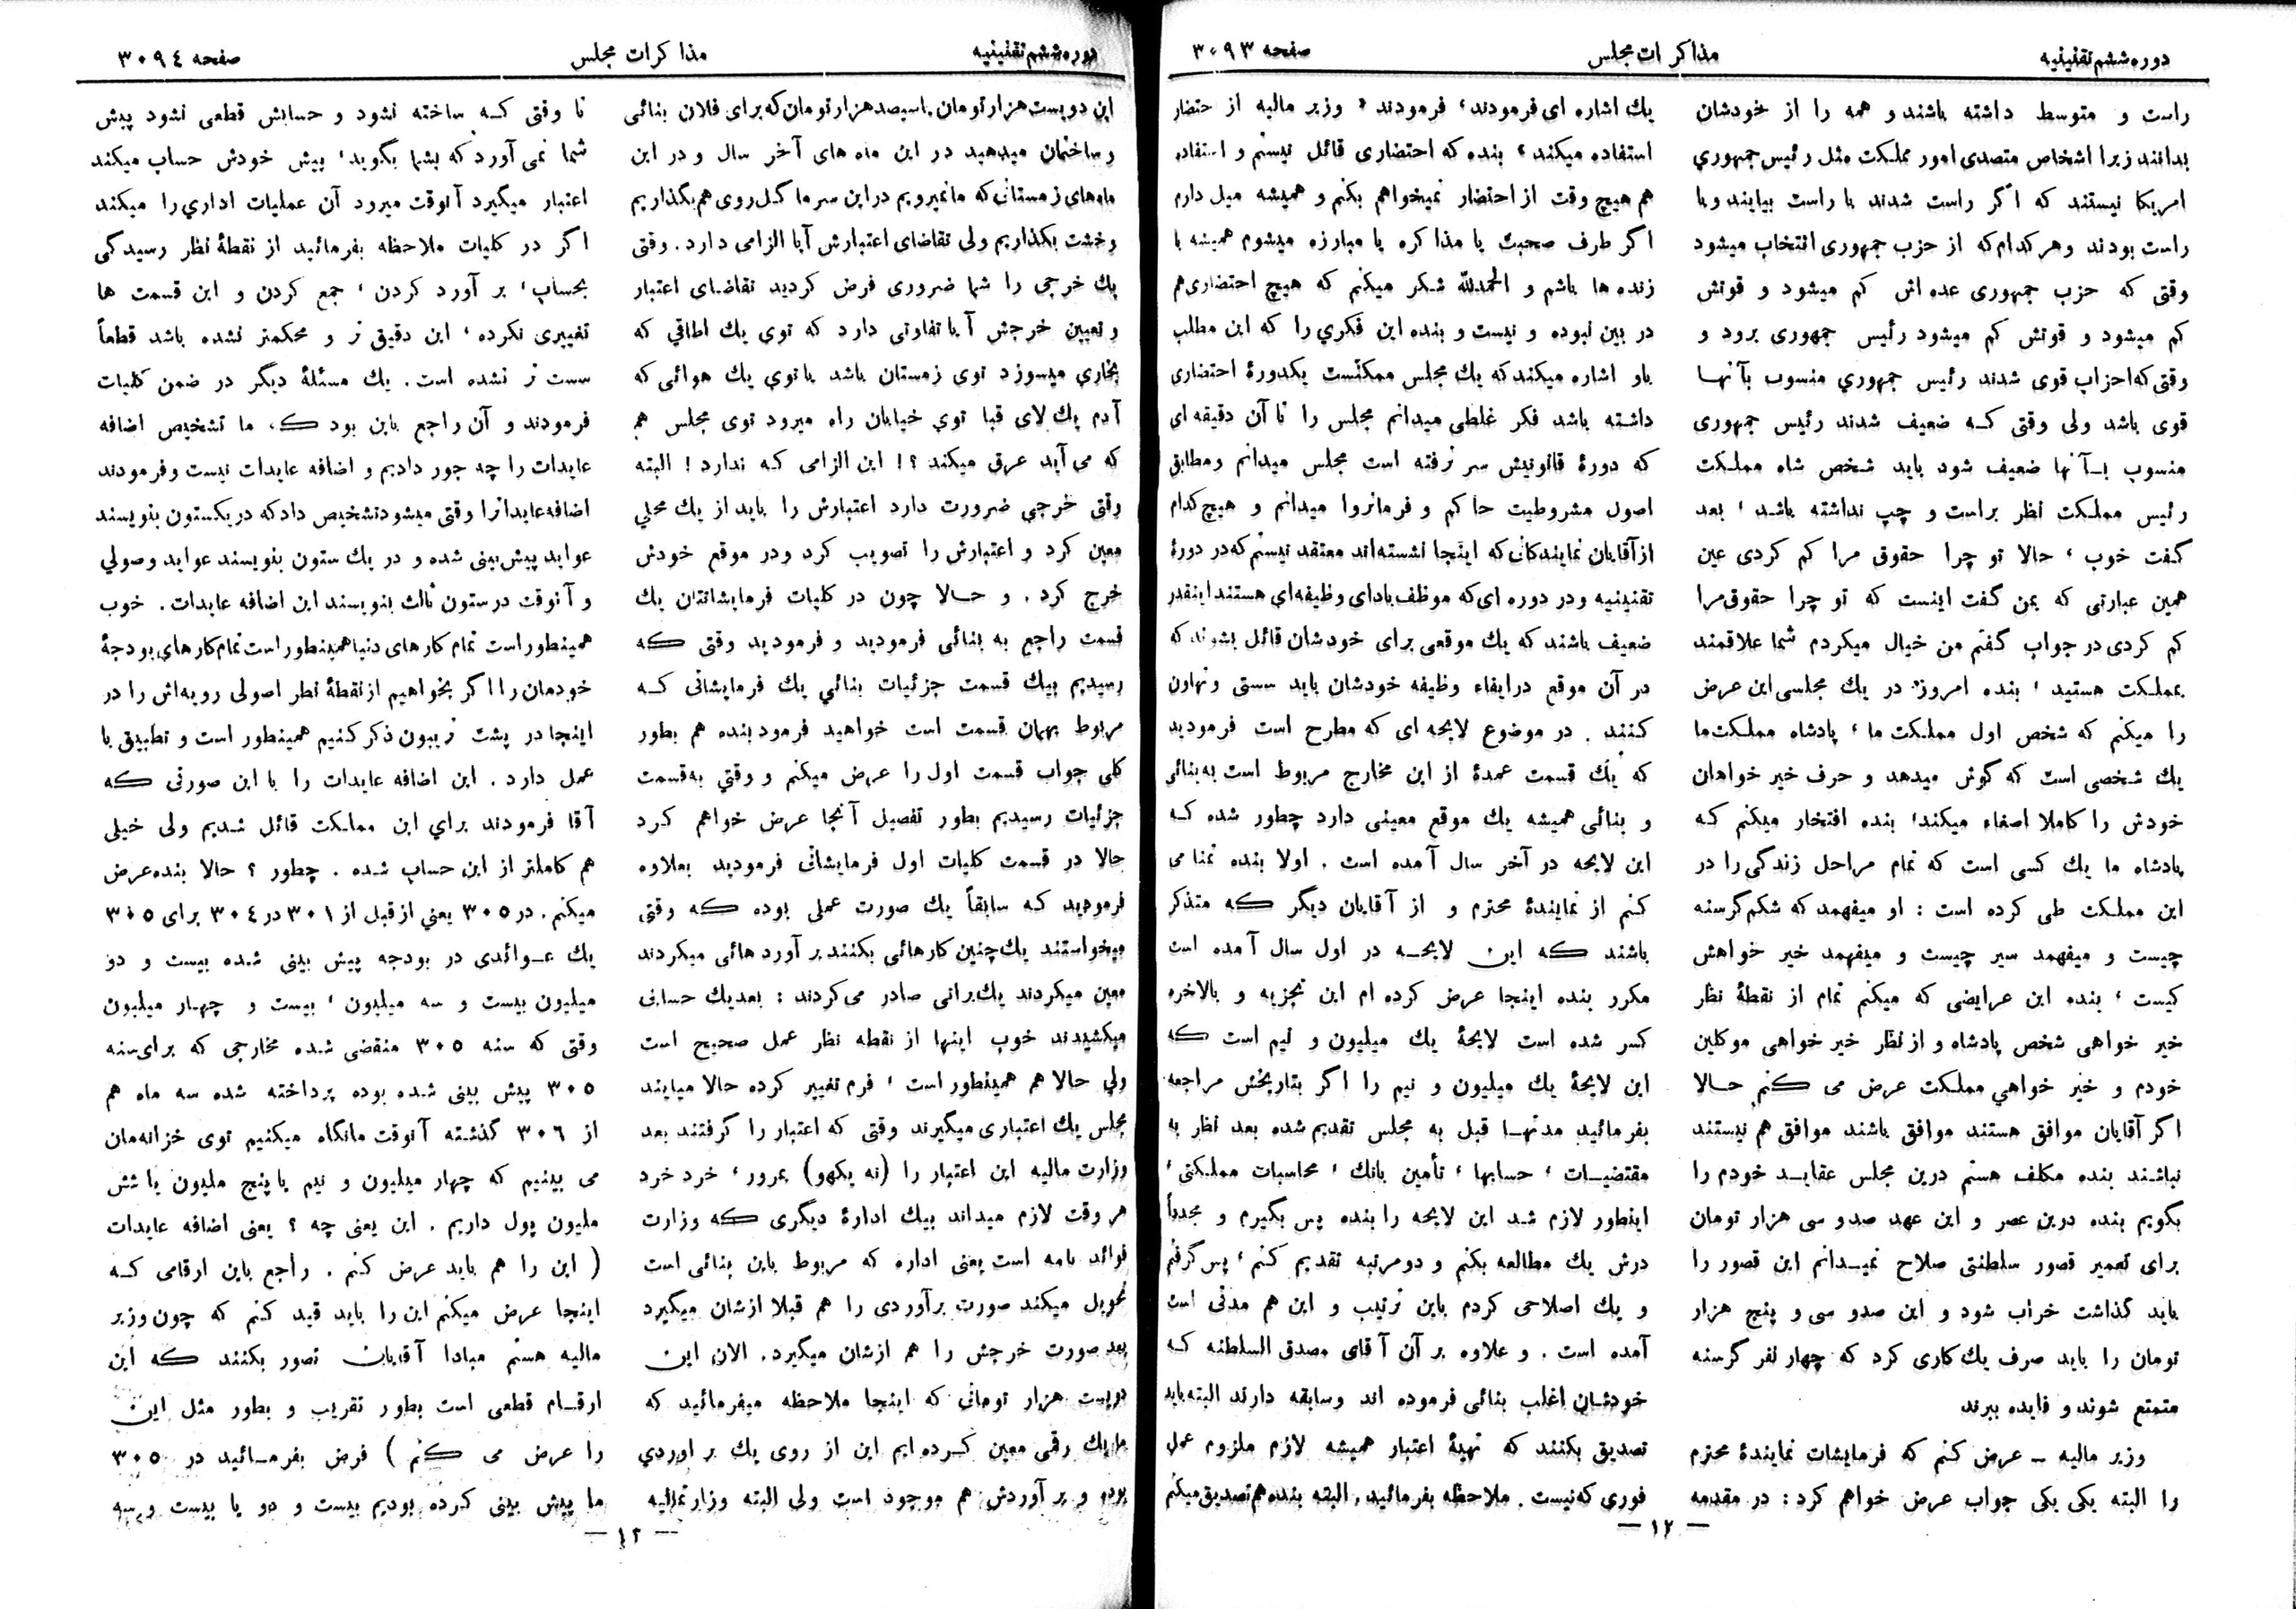 دوره ششم تقنینیه
مذاکرات مجلس
صفحه ۳۰۹۳
راست و متوسط داشته باشند و همه را از خودشان
بدانند زیرا اشخاص متصدی امور مملکت مثل رئیس جمهوري
امریکا نیستند که اگر راست شدند با راست بیایند و با
راست بودند وهر کدام که از حزب جمهوری انتخاب میشود
وقتی که حزب جمهوری عده اش کم میشود و قوتش
کم میشود و قوتش کم میشود رئیس جمهوری برود و
وقتی که احزاب قوی شدند رئیس جمهوري منسوب بآنهـا
قوی باشد ولی وقتی کـه ضعیف شدند رئیس جمهوری
منسوب بـآنها ضعیف شود باید شخص شاه مملکت
رئیس مملکت نظر براست و چپ نداشته باشد ، بعد
گفت خوب ، حالا تو چرا حقوق مرا کم کردی عین
همین عبارتی که بمن گفت اینست که تو چرا حقوق مرا
کم کردی در جواب گفتم من خیال میکردم شما علاقمند
بمملکت هستید ، بنده امروز در یك مجلسی این عرض
را میکنم که شخص اول مملکت ما ، پادشاه مملکت ما
یك شخصی است که گوش میدهد و حرف خیر خواهان
خودش را کاملا اصغاء میکند، بنده افتخار میکنم کـه
پادشاه ما یك کسی است که تمام مراحل زندگی را در
این مملکت طی کرده است : او میفهمد که شکم گرسنه
چیست و میفهمد سیر چیست و میفهمد خیر خواهش
کیست ، بنده این عرایضی که میکنم تمام از نقطهٔ نظر
خیر خواهی شخص پادشاه و از نظر خیر خواهی موکلین
خودم و خیر خواهي مملکت عرض می کنم حـالا
اگر آقایان موافق هستند موافق باشند موافق هم نیستند
نباشند بنده مکلف هستم درین مجلس عقایـد خودم را
بگویم بنده درین عصر و این عهد صدو سی هزار تومان
برای تعمیر قصور سلطنتی صلاح نمیـدانم این قصور را
باید گذاشت خراب شود و این صدو سی و پنج هزار
تومان را باید صرف یك کاری کرد که چهار نفر گرسنه
متمتع شوند و فایده ببرند
وزیر مالیه ــ عرض کنم که فرمایشات نمایندهٔ محترم
را البته یکی یکی جواب عرض خواهم کرد : در مقدمه
یك اشاره ای فرمودند، فرمودند « وزیر مالیه از حتضار
استفاده میکند » بنده که احتضاری قائل نیستم و استفاده
هم هیچ وقت از احتضار نمیخواهم بکنم و همیشه میل دارم
اگر طرف صحبت یا مذاکره یا مبارزه میشوم همیشه با
زنده ها باشم و الحمدلله شکر میکنم که هیچ احتضاری هم
در بین نبوده و نیست و بنده این فکري را که این مطلب
باو اشاره میکند که یك مجلس ممکنست یکدورهٔ احتضاری
داشته باشد فکر غلطی میدانم مجلس را تا آن دقیقه ای
که دورهٔ قانونیش سر نرفته است مجلس میدانم ومطابق
اصول مشروطیت حاکم و فرمانروا میدانم و هیچ کدام
از آقایان نمایندگان که اینجا نشسته اند معتقد نیستم که در دورهٔ
تقنینیه و در دوره ای که موظف بادای وظیفه ای هستند اینقدر
ضعیف باشند که یك موقعی برای خودشان قائل بشوند که
در آن موقع در ایفاء وظیفه خودشان باید سستی و تهاون
کنند . در موضوع لایحه ای که مطرح است فرمودید
که یك قسمت عمدهٔ از این مخارج مربوط است به بنائی
و بنائی همیشه یك موقع معینی دارد چطور شده کـه
این لایحه در آخر سال آمده است . اولا بنده تمنا می
کنم از نمایندهٔ محترم و از آقایان دیگر که متذکر
باشند که این لایحـه در اول سال آمده است
مکرر بنده اینجا عرض کرده ام این تجزیه و بالاخره
کسر شده است لایحهٔ یك میلیون و نیم است که
این لایحهٔ یك میلیون و نیم را اگر بتاریخش مراجعه
بفرمائید مدتهـا قبل به مجلس تقدیم شده بعد نظر به
مقتضیـات ، حسابها ، تأمین بانك ، محاسبات مملکتی ،
اینطور لازم شد این لایحه را بنده پس بگیرم و مجدداً
درش یك مطالعه بکنم و دومرتبه تقدیم کنم ، پس گرفتم
و یك اصلاحی کردم باین ترتیب و این هم مدتی است
آمده است . و علاوه بر آن آقای مصدق السلطنه کـه
خودشان اغلب بنائی فرموده اند وسابقه دارند البته باید
تصدیق بکنند که تهیهٔ اعتبار همیشه لازم ملزوم عمل
فوری که نیست . ملاحظه بفرمائید، البته بنده هم تصدیق میکنم
— ۱۲ —
دوره ششم تقنینیه
مذاکرات مجلس
صفحه ۳۰۹٤
این دویست هزار تومان یا سیصد هزار تومان که برای فلان بنائی
و ساختمان میدهید در این ماه های آخر سال و در این
ماه های زمستانی که ما نمیرویم در این سرما گل روی هم بگذاریم
و خشت بگذاریم ولی تقاضای اعتبارش آیا الزامی دارد . وقتی
یك خرجی را شما ضروری فرض کردید تقاضای اعتبار
و تعیین خرجش آیا تفاوتی دارد که توی یك اطاقی که
بخاري میسوزد توی زمستان باشد یا توی یك هوائی که
آدم یك لای قبا توی خیابان راه میرود توی مجلس هم
که می آید عرق میکند ؟! این الزامی کـه ندارد ! البته
وقتی خرجی ضرورت دارد اعتبارش را باید از یك محلی
معین کرد و اعتبارش را تصویب کرد ودر موقع خودش
خرج کرد . و حـالا چون در کلیات فرمایشاتتان یك
قسمت راجع به بنائی فرمودید و فرمودید وقتی که
رسیدیم بیك قسمت جزئیات بنائي یك فرمایشاتی کـه
مربوط بهمان قسمت است خواهید فرمود بنده هم بطور
کلی جواب قسمت اول را عرض میکنم و وقتي به قسمت
جزئیات رسیدیم بطور تفصیل آنجا عرض خواهم کرد
حالا در قسمت کلیات اول فرمایشاتی فرمودید بعلاوه
فرمودید کـه سابقاً یك صورت عملی بوده که وقتی
میخواستند یك چنین کارهائی بکنند بر آورد هائی میکردند
معین میکردند یك براتی صادر می کردند : بعد یك حسابی
میکشیدند خوب اینها از نقطه نظر عمل صحیح است
ولي حالا هم همینطور است ، فرم تغییر کرده حالا میایند
مجلس یك اعتباری میگیرند وقتی که اعتبار را گرفتند بعد
وزارت مالیه این اعتبار را (نه یکهو) بمرور ، خرد خرد
هر وقت لازم میداند بیك ادارهٔ دیگری که وزارت
فوائد عامه است یعنی اداره که مربوط باین بنائی است
تحویل میکند صورت برآوردی را هم قبلا ازشان میگیرد
بعد صورت خرجش را هم ازشان میگیرد. الان این
دویست هزار تومانی که اینجا ملاحظه میفرمائید که
ما یك رقمی معین کرده ایم این از روی یك بر اوردي
بوده و بر آوردش هم موجود است ولی البته وزارتمالیه
تا وقتی کـه ساخته نشود و حسابش قطعی نشود پیش
شما نمی آورد که بشما بگوید، پیش خودش حساب میکند
اعتبار میگیرد آنوقت میرود آن عملیات اداري را میکند
اگر در کلیات ملاحظه بفرمائید از نقطهٔ نظر رسیدگی
بحساب، بر آورد کردن ، جمع کردن و این قسمت ها
تغییری نکرده ، این دقیق تر و محکمتر نشده باشد قطعاً
سست تر نشده است . یك مسئلهٔ دیگر در ضمن کلیات
فرمودند و آن راجع باین بود که ما تشخیص اضافه
عایدات را چه جور دادیم و اضافه عایدات نیست و فرمودند
اضافه عایدات را وقتی میشود تشخیص داد که در یکستون بنویسند
عواید پیش بینی شده و در یك ستون بنویسند عواید وصولي
و آنوقت در ستون ثالث بنویسند این اضافه عایدات . خوب
همینطور است تمام کار های دنیا همینطور است تمام کار های بودجهٔ
خودمان را اگر بخواهیم از نقطهٔ نظر اصولی رویه اش را در
اینجا در پشت تریبون ذکر کنیم همینطور است و تطبیق با
عمل دارد . این اضافه عایدات را با این صورتی که
آقا فرمودند براي این مملکت قائل شدیم ولی خیلی
هم کاملتر از این حساب شده . چطور ؟ حالا بنده عرض
میکنم . در ۳۰۵ یعني از قبل از ۳۰۱ در ۳۰٤ برای ۳۰۵
یك عـوائدی در بودجه پیش بینی شده بیست و دو
میلیون بیست و سه میلیون ، بیست و چهار میلیون
وقتی که سنه ۳۰۵ منقضی شده مخارجی که برای سنه
۳۰۵ پیش بینی شده بوده پرداخته شده سه ماه هم
از ۳۰٦ گذشته آنوقت ما نگاه میکنیم توی خزانه مان
می بینیم که چهار میلیون و نیم یا پنج ملیون یا شش
ملیون پول داریم . این یعنی چه ؟ یعنی اضافه عایدات
( این را هم باید عرض کنم . راجع باین ارقامی کـه
اینجا عرض میکنم این را باید قید کنم که چون وزیر
مالیه هستم مبادا آقایان تصور بکنند که این
ارقـام قطعی است بطور تقریب و بطور مثل این
را عرض می کنم ) فرض بفرمـائید در ۳۰۵
ما پیش بینی کرده بودیم بیست و دو یا بیست و سه
— ۱۲ —